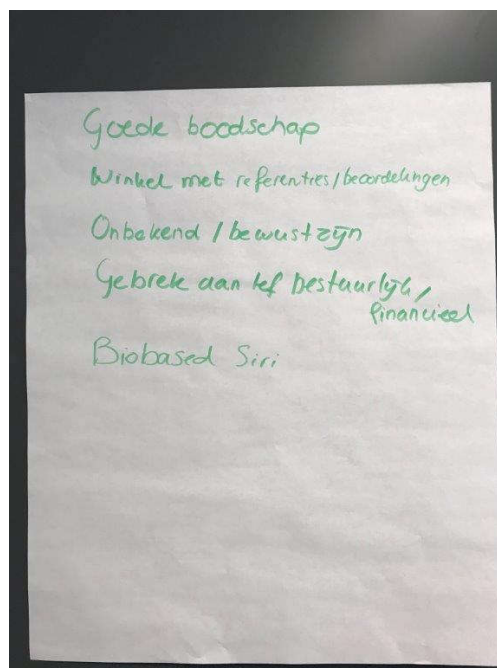 Goede boodschap
Winkel met referenties/beoordelingen
Onbekend / bewustzijn
Gebrek aan lef bestuurlijk/
financieel
Biobased Siri